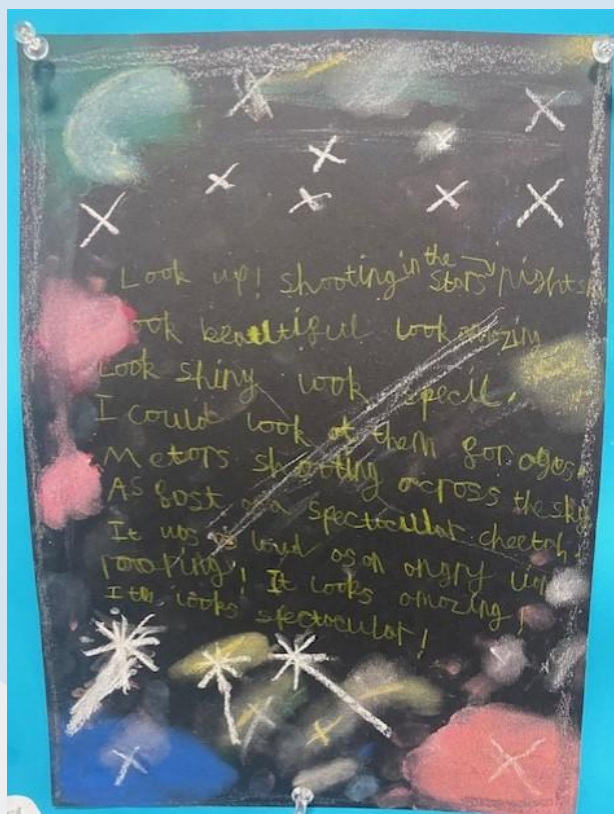 Look up! shooting in the stars night s
ook beautiful look amazing
Look shiny look specil.
I could look at them for ages.
Metors shooting across the sky
As fast as a spectacular cheetah
It was as loud as an angry lion
roaring! It looks amazing!
It looks spectacular!